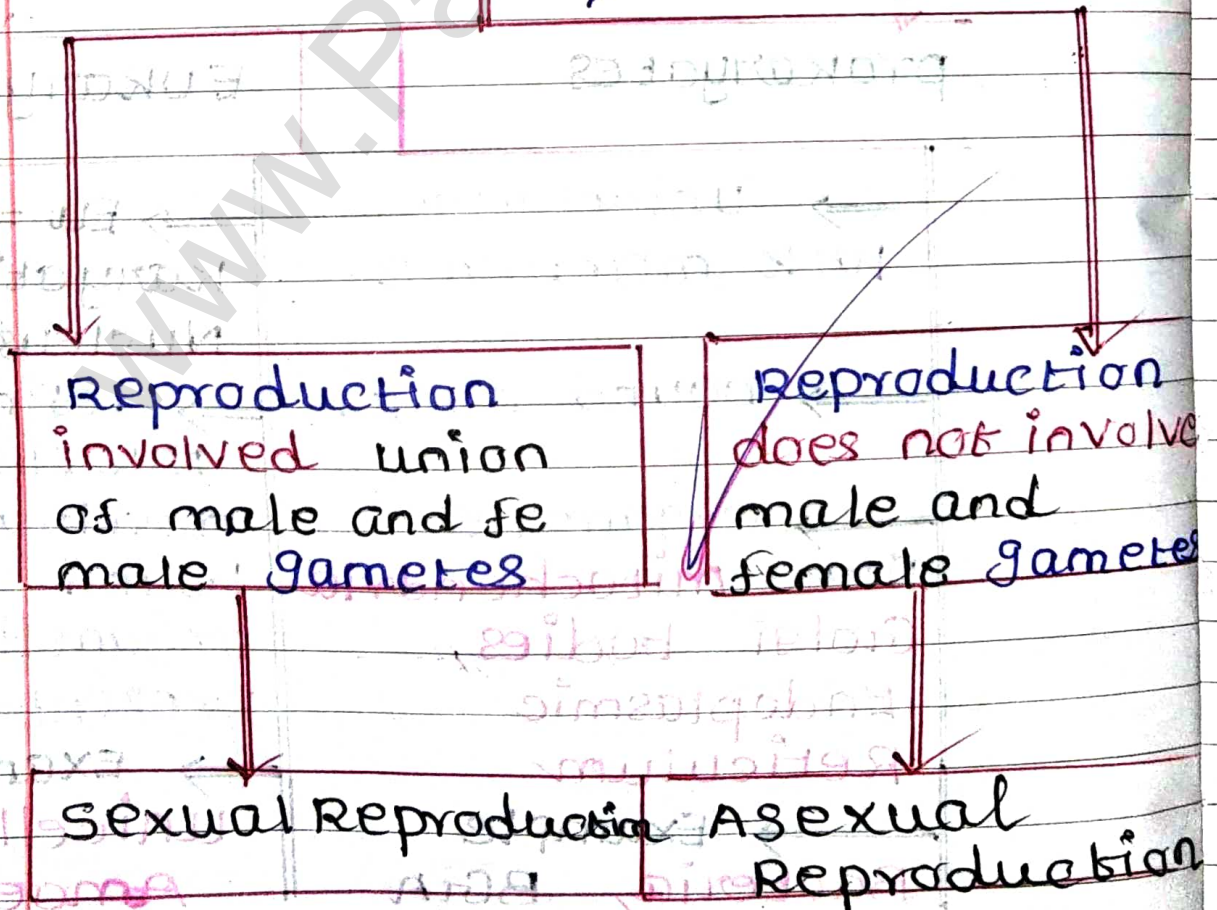 Reproduction
involved union
of male and fe
male gametes
Reproduction
does not involve
male and
female gametes
Sexual Reproduction
Asexual
Reproduction